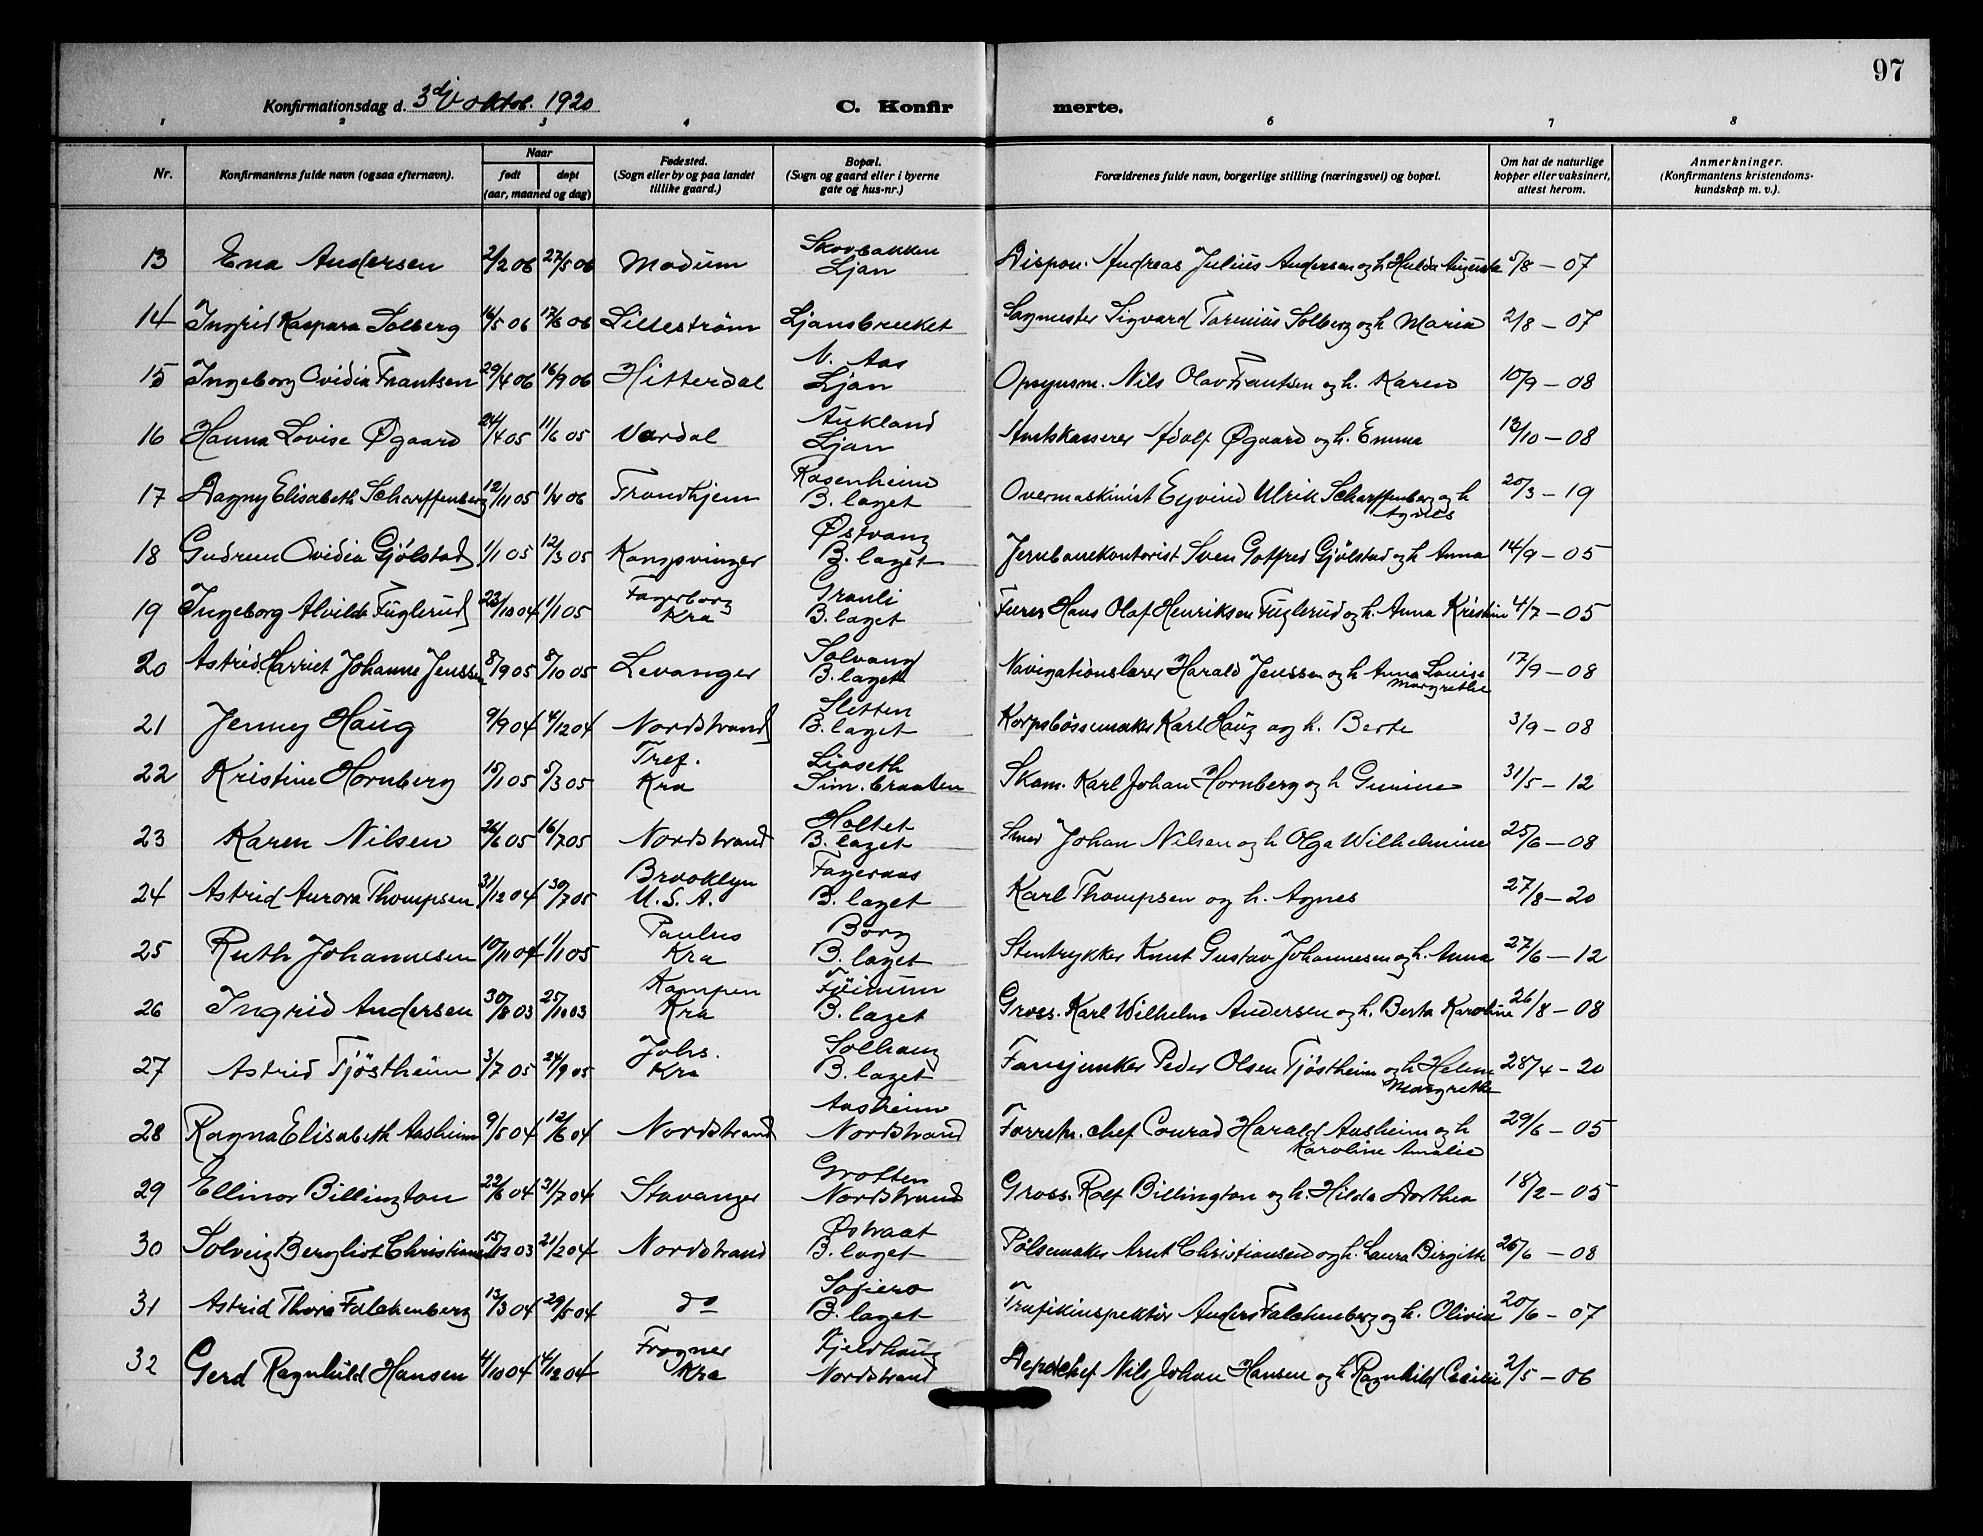 97
Konfirmationsdag d. 3die oktob. 1920
C. Konfirmerte.
1 2 3 4 6 7 8
Nr.
Konfirmantens fulde navn (ogsaa efternavn).
Naar
født
døpt
(aar, maaned og dag)
Fødested.
(Sogn eller by og paa landet
tillike gaard.)
Bopæl.
(Sogn og gaard eller i byerne
gate og hus-nr.)
Forældrenes fulde navn, borgerlige stilling (næringsvei) og bopæl.
Om hat de naturlige
kopper eller vaksinert,
attest herom.
Anmerkninger.
(Konfirmantens kristendoms-
kundskap m. v.).
13 Ena Andersen 2/2 06 27/5 06 Modum Skovbakken Ljan Dispon. Andreas Julius Andersen og h. Hulda Auguste 5/8 - 07
14 Ingrid Kaspara Solberg 16/5 06 17/6 06 Lilleström Ljansbruket Sagmester Sigvard Torenius Solberg og h. Maria 2/8 - 07
15 Ingeborg Ovidia Frantsen 29/4 06 16/9 06 Hitterdal N. Aas Ljan Opsynsm. Nils Olav Frantsen og h. Karen 10/9 - 08
16 Hanna Lovise Øgaard 24/4 05 11/6 05 Vardal Aukland Ljan Amtskasserer Adolf Øgaard og h. Emma 13/10 - 08
17 Dagny Elisabeth Scharffenberg 12/11 05 1/4 06 Trondhjem Rosenheim B. laget Overmaskinist Eyvind Ulrik Scharffenberg og h Agnes 20/3 - 19
18 Gudrun Ovidia Gjölstad 1/1 05 12/3 05 Kongsvinger Østvang B. laget Jernbanekontorist Sven Gotfred Gjölstad og h Anna 14/9 - 05
19 Ingeborg Alvilde Fuglerud 23/10 04 1/1 05 Fagerborg Kra Granli B. laget Furer Hans Olaf Henriksen Fuglerud og h. Anna Kristine 4/7 - 05
20 Astrid Harriet Johanne Jenssen 8/9 05 8/10 05 Levanger Solvang B. laget Navigationslærer Harald Jenssen og h Anna Louise Margrethe 17/9 - 08
21 Jenny Haug 9/9 04 4/12 04 Nordstrand Sletten B. laget Korpsbössemaker Karl Haug og h. Berte 3/9 - 08
22 Kristine Hornberg 15/1 05 5/3 05 Tref. Kra Liaseth Sim. braaten Skom. Karl Johan Hornberg og h Gunine 31/5 - 12
23 Karen Nilsen 26/6 05 16/7 05 Nordstrand Holtet B. laget Smed Johan Nilsen og h Olga Wilhelmine 25/6 - 08
24 Astrid Aurora Thompsen 31/12 04 30/7 05 Brooklyn U. S. A. Fageraas B. laget Karl Thompsen og h. Agnes 27/8 - 20
25 Ruth Johannesen 10/11 04 1/1 05 Paulus Kra Borg B. laget Stentrykker Knut Gustav Johannesen og h. Anna 27/6 - 12
26 Ingrid Andersen 30/8 03 25/10 03 Kampen Kra B. laget Gross. Karl Wilhelm Andersen og h. Berta Karoline 26/8 - 08
27 Astrid Tjöstheim 3/7 05 24/9 05 Johs. Kra Solhaug B. laget Fanejunker Peder Olsen Tjöstheim og h Helene Margrethe 28/4 - 20
28 Ragna Elisabeth Aasheim 9/5 04 12/6 04 Nordstrand Aasheim Nordstrand Forretn. chef Conrad Harald Aasheim og h Karoline Amalie 29/6 - 05
29 Ellinor Billington 22/6 04 31/7 04 Stavanger Grotten Nordstrand Gross. Rolf Billington og h. Hilda Dorthea 18/2 - 05
30 Solveig Bergliot Christiansen 15/12 03 21/2 04 Nordstrand Østraat B. laget Pölsemaker Arnt Christiansen og h. Laura Birgitte 26/6 - 08
31 Astrid Thora Falchenberg 13/3 04 29/5 04 do Sofiero B. laget Trafikinspektör Anders Falchenberg og h. Olivia 20/6 - 07
32 Gerd Ragnhild Hansen 4/10 04 4/12 04 Frogner Kra Fjeldhaug Nordstrand Depotchef Nils Johan Hansen og h Ragnhild Cecilie 2/5 - 06